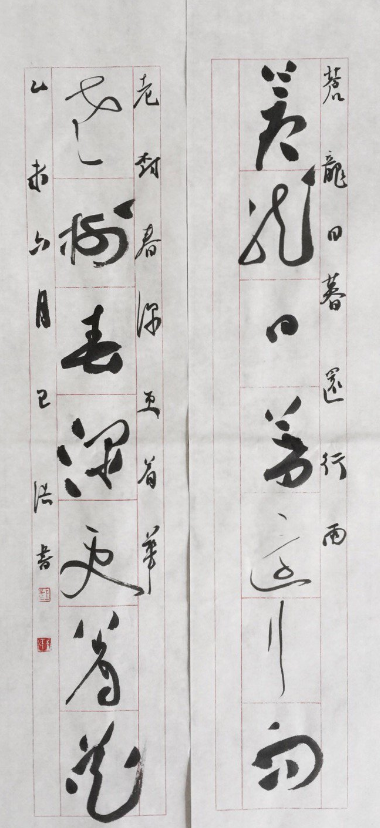 蒼龍日暮還行雨
蒼龍日暮還行雨
老樹春深更着華
老樹春深更着花
乙未六月書